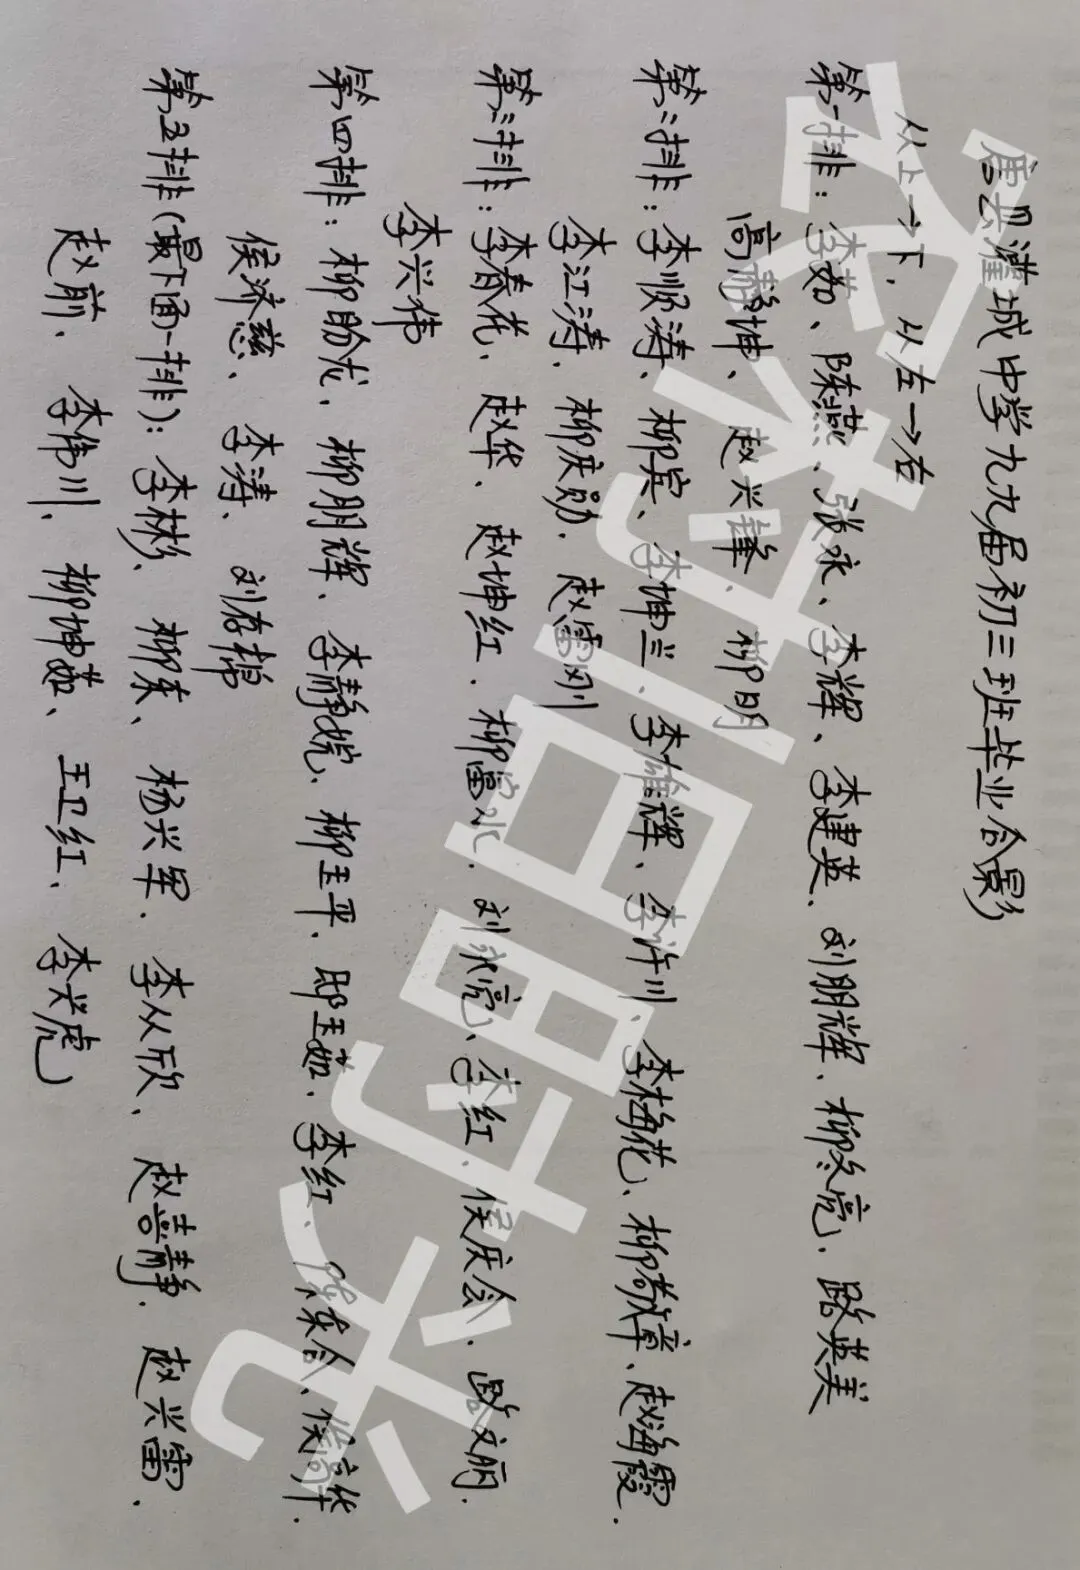 唐县灌城中学九九届初三班毕业合影
从上→下,从左→右
第一排:李茹、陈燕、张永、李辉、李建英、刘朋辉、柳冬亮、路英美
高静坤、赵兴锋、柳明
第二排:李顺涛、柳宾、李坤兰、李雄辉、李许川、李梅花、柳彦章、赵海霞、
李江涛、柳庆勋、赵雷刚
第三排:李春花、赵华、赵坤红、柳富水、刘永亮、李红、侯庆会、路文丽、
李兴伟
第四排:柳盼龙、柳朋辉、李静婉、柳玉平、邸玉茹、李红、陈东会、侯彦华、
侯济慈、李涛、刘存棉
第五排(最下面一排):李彬、柳东、杨兴军、李从欣、赵喜静、赵兴雷、
赵前、李伟川、柳坤茹、王卫红、李兴虎
名村旧时光